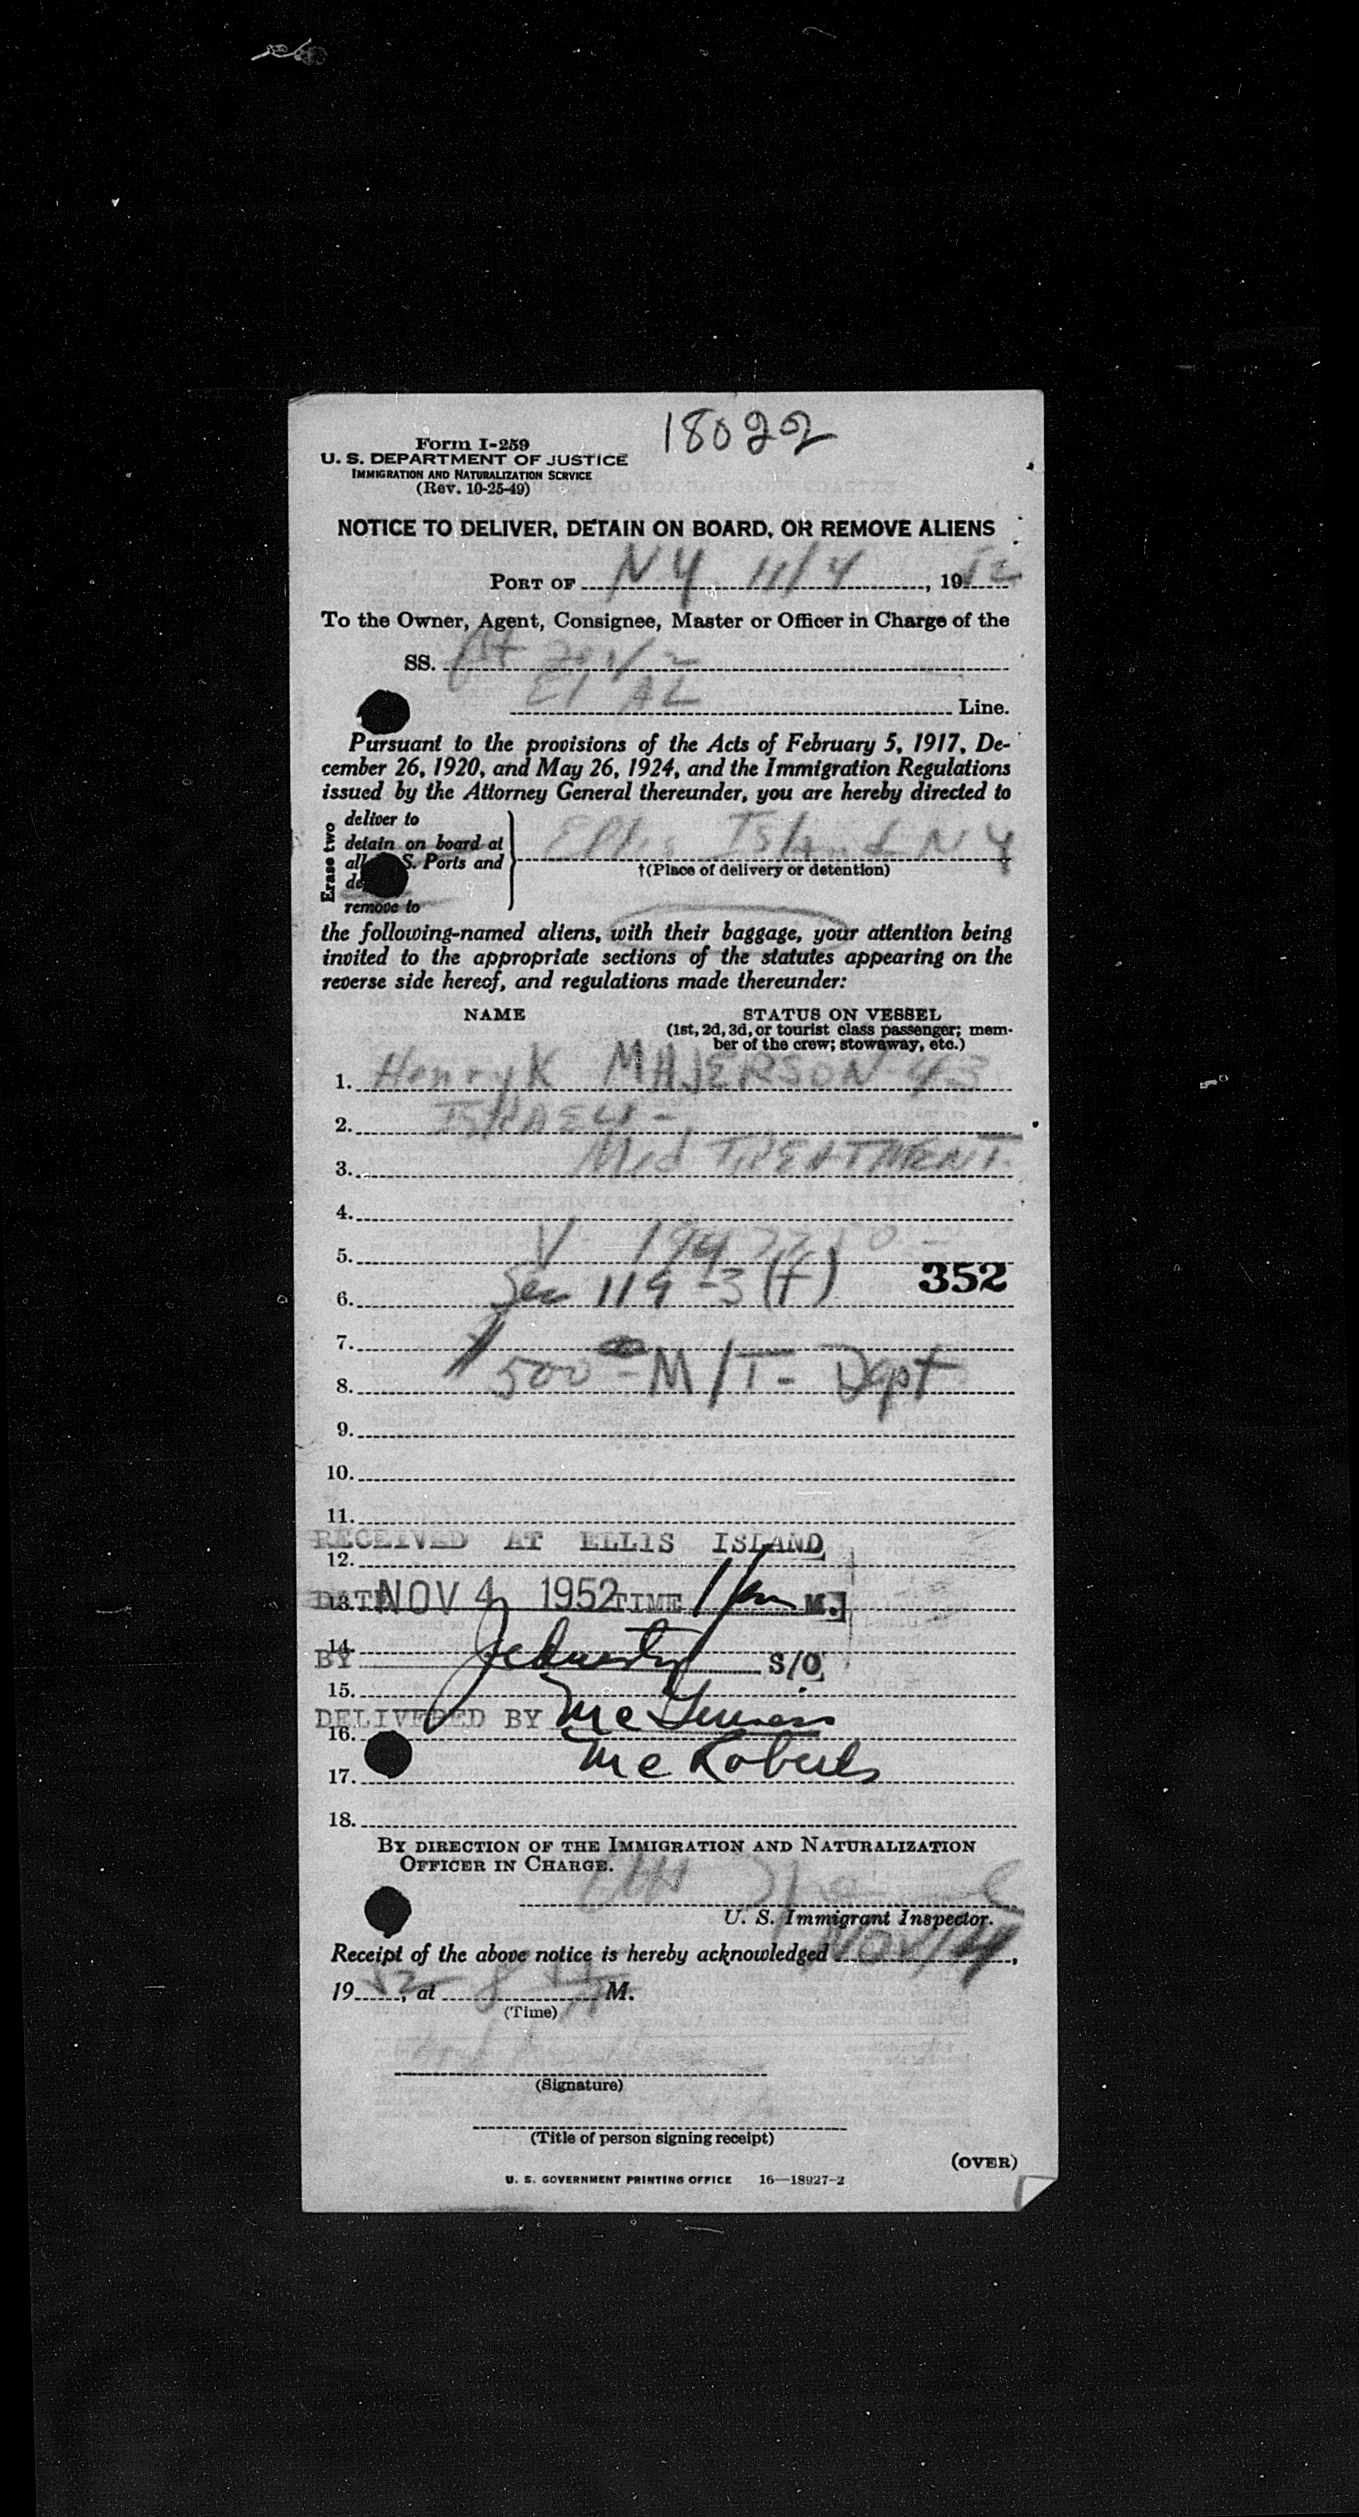 18022
Form I-259
U. S. DEPARTMENT OF JUSTICE
IMMIGRATION AND NATURALIZATION SERVICE
(Rev. 10-25-49)
NOTICE TO DELIVER, DETAIN ON BOARD, OR REMOVE ALIENS
PORT OF N Y 11/4, 1952
To the Owner, Agent, Consignee, Master or Officer in Charge of the
SS.
El AL Line.
Pursuant to the provisions of the Acts of February 5, 1917, De-
cember 26, 1920, and May 26, 1924, and the Immigration Regulations
issued by the Attorney General thereunder, you are hereby directed to
Erase two
deliver to
detain on board at
all S. Ports and
remove to
Ellis Island N Y
†(Place of delivery or detention)
the following-named aliens, with their baggage, your attention being
invited to the appropriate sections of the statutes appearing on the
reverse side hereof, and regulations made thereunder:
NAME STATUS ON VESSEL
(1st, 2d, 3d, or tourist class passenger; mem-
ber of the crew; stowaway, etc.)
1. Henryk MAJERSON - 43
2. ISRAELI -
3. Med TREATMENT
4.
5. V
6. Sec 119-3 (f) 352
7.
8. $500 00 - M/T - Dept
9.
10.
11.
RECEIVED AT ELLIS ISLAND
12.
13. DATE NOV 4 1952 TIME 1 pm M.
14.
BY S/O
15.
DELIVERED BY McGuiness
16.
McRoberts
17.
18.
BY DIRECTION OF THE IMMIGRATION AND NATURALIZATION
OFFICER IN CHARGE.
U. S. Immigrant Inspector.
Receipt of the above notice is hereby acknowledged Nov 4,
1952, at 8 M.
(Time)
(Signature)
(Title of person signing receipt)
(OVER)
U. S. GOVERNMENT PRINTING OFFICE 16—18927-2